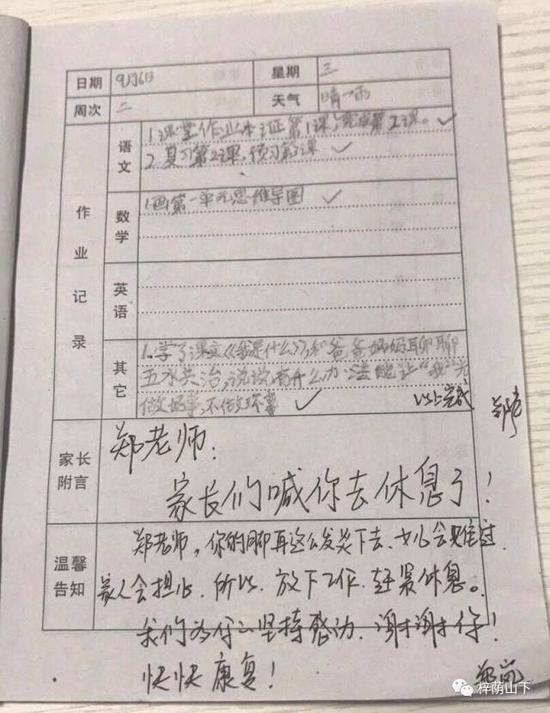 日期 9月6日 星期 三
周次 二 天气 晴→雨
作业记录
语文
1.课堂作业本订正第1课,完成第2课。✓
2.复习第2课,预习第3课 ✓
数学
1.画第一单元思维导图 ✓
英语
其它
1.学了课文《我是什么》,和爸爸妈妈聊聊
五水共治,说说有什么办法能让“我”光
做好事,不做坏事 ✓ 以上完成
家长附言
郑老师:
家长们喊你去休息了!
温馨告知
郑老师,你的脚再这么发炎下去,女儿会难过,
家人会担心.所以,放下工作,赶紧休息。
我们为你的坚持感动,谢谢你!
快快康复!
梓荫山下